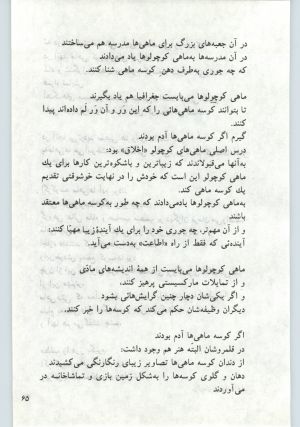 در آن جعبه‌های بزرگ برای ماهی‌ها مدرسه هم می‌ساختند
در آن مدرسه‌ها به‌ماهی کوچولوها یاد می‌دادند
که چه جوری به‌طرف دهن کوسه ماهی شنا کنند.
ماهی کوچولوها می‌بایست جغرافیا هم یاد بگیرند
تا بتوانند کوسه ماهی‌هائی را که این وَر و آن وَر لَم داده‌اند پیدا
کنند.
گیرم اگر کوسه ماهی‌ها آدم بودند
درس اصلی ماهی‌های کوچولو «اخلاق» بود:
به‌آنها می‌قبولاندند که زیباترین و باشکوه‌ترین کارها برای یك
ماهی کوچولو این است که خودش را در نهایت خوشوقتی تقدیم
یك کوسه ماهی کند.
به‌ماهی کوچولوها یادمی‌دادند که چه طور به‌کوسه ماهی‌ها معتقد
باشند
و از آن مهم‌تر، چه جوری خود را برای یك آیندهٔ زیبا مهیّا کنند:
آینده‌ئی که فقط از راه «اطاعت» به‌دست می‌آید.
ماهی کوچولوها می‌بایست از همهٔ اندیشه‌های مادّی
و از تمایلات مارکسیستی پرهیز کنند؛
و اگر یکی‌شان دچار چنین گرایش‌هائی بشود
دیگران وظیفه‌شان حکم می‌کند که کوسه‌ها را خبر کنند.
اگر کوسه ماهی‌ها آدم بودند
در قلمروشان البته هنر هم وجود داشت:
از دندان کوسه ماهی‌ها تصاویر زیبای رنگارنگی می‌کشیدند
دهان و گلوی کوسه‌ها را به‌شکل زمین بازی و تماشاخانه در
می‌آوردند
۶۵